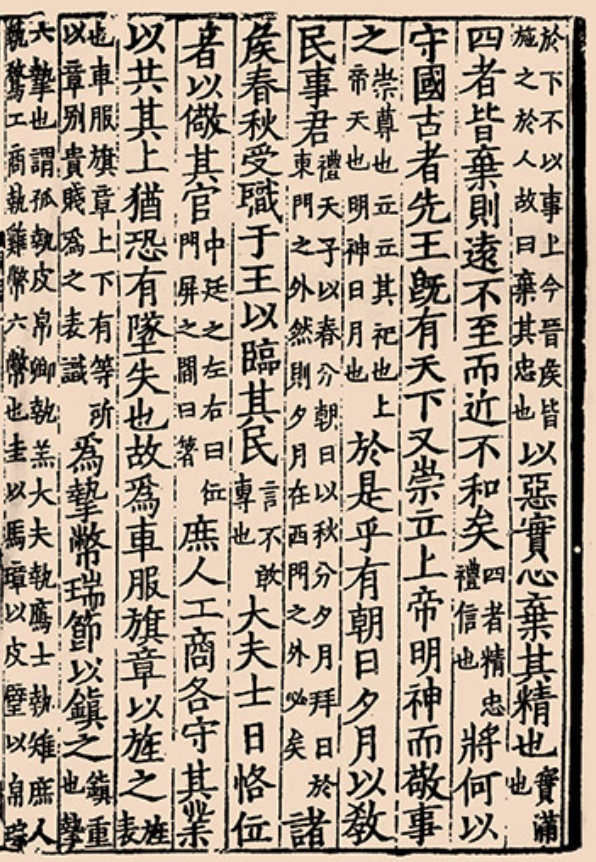 於下不以事上今晉矦皆施之於人故曰棄其忠也以惡實心棄其精也實滿也
四者皆棄則遠不至而近不和矣四者精忠禮信也將何以
守國古者先王旣有天下又崇立上帝明神而敬事
之崇尊也立立其祀也上帝天也明神日月也於是乎有朝日夕月以敎
民事君禮天子以春分朝日以秋分夕月拜日於東門之外然則夕月在西門之外必矣諸
矦春秋受職于王以臨其民言不敢專也大夫士日恪位
者以儆其官中廷之左右曰位門屏之閒曰箸庶人工商各守其業
以共其上猶恐有墜失也故爲車服旗章以旌之旌表
也車服旗章上下有等所以章別貴賤爲之表識爲摯幣瑞節以鎭之鎭重也摯
六摯也謂孤執皮帛卿執羔大夫執鴈士執雉庶人執鶩工商執雞幣六幣也圭以馬璋以皮璧以帛琮